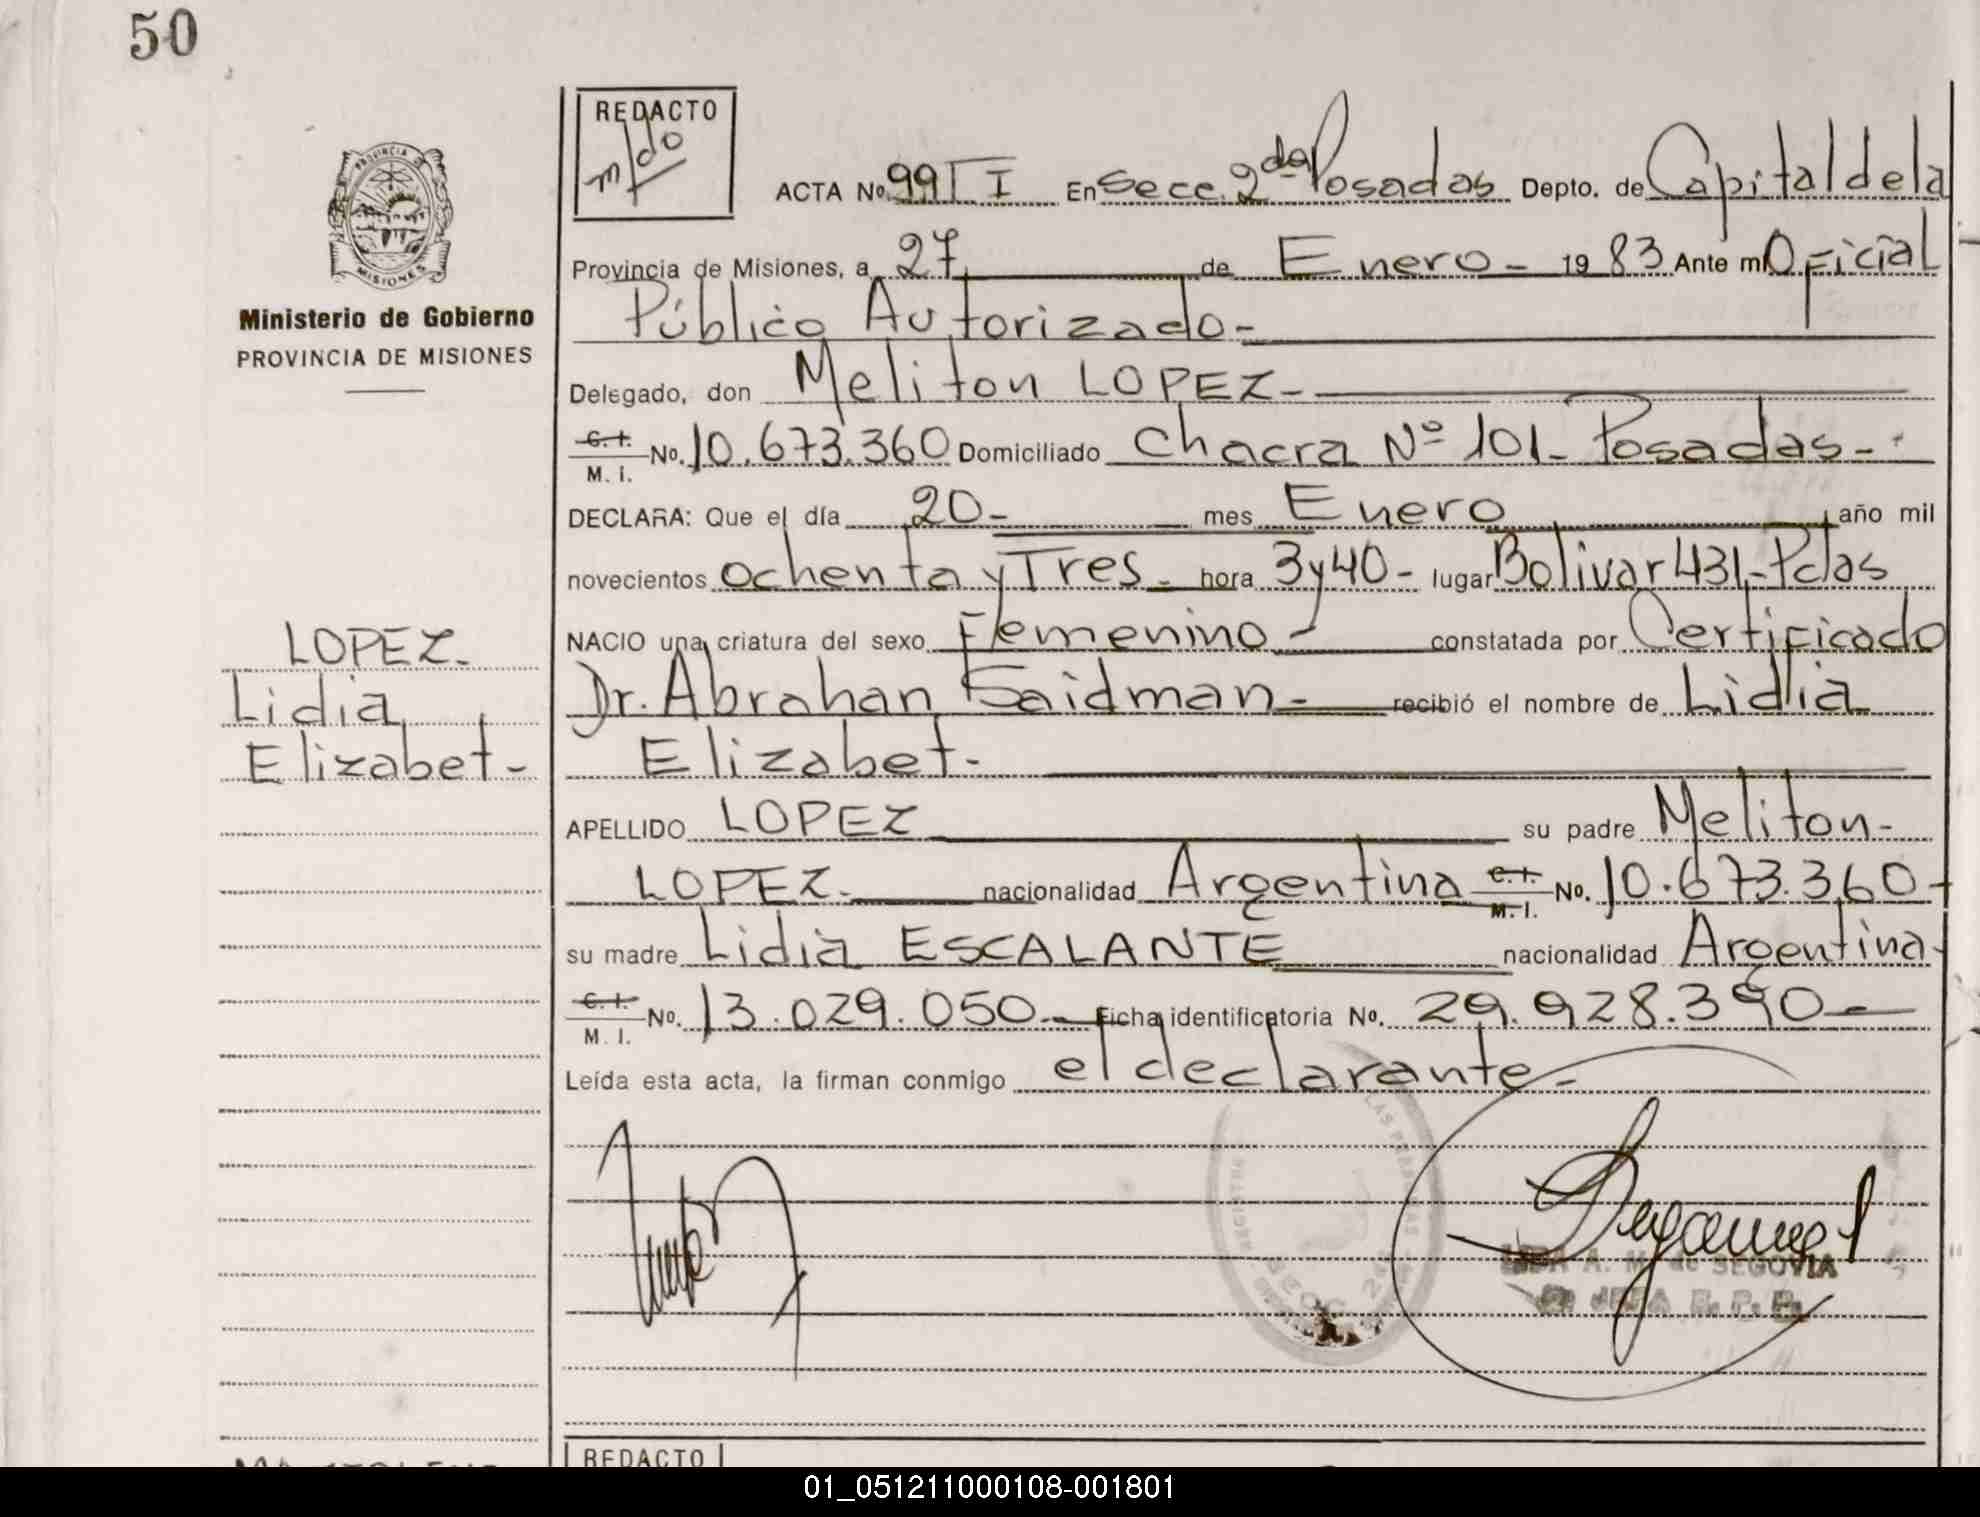 50
REDACTO
m/do
ACTA No. 99 T I En Secc. 2da Posadas Depto. de Capital de la
PROVINCIA DE MISIONES
Provincia de Misiones, a 27 de Enero - 19 83 Ante mi Oficial
Ministerio de Gobierno
PROVINCIA DE MISIONES
Público Autorizado-
Delegado, don Meliton LOPEZ-
C. I. M. I. No. 10.673.360 Domiciliado Chacra Nº 101- Posadas-
DECLARA: Que el día 20- mes Enero año mil
novecientos ochenta y Tres- hora 3y40- lugar Bolivar 431-Pdas
LOPEZ-
Lidia
Elizabet-
NACIO una criatura del sexo Femenino- constatada por Certificado
Dr. Abrahan Saidman- recibió el nombre de Lidia
Elizabet-
APELLIDO LOPEZ su padre Meliton-
LOPEZ- nacionalidad Argentina C. I. M. I. No. 10.673.360-
su madre Lidia ESCALANTE nacionalidad Argentina-
C. I. M. I. No. 13.029.050- Ficha identificatoria No. 29.928.390-
Leída esta acta, la firman conmigo el declarante-
A. M. de SEGOVIA
JEFA R. P. P.
REDACTO
01_051211000108-001801